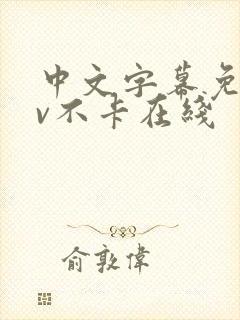 中文字幕免
v不卡在綫
俞敦偉